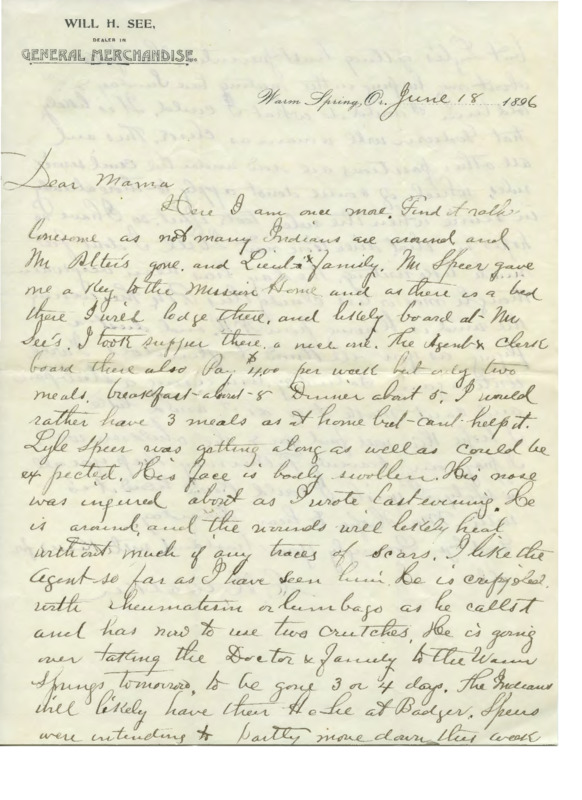 WILL H. SEE,
DEALER IN
GENERAL MERCHANDISE.
Warm Spring, Or. June 18 1896
Dear Mama
Here I am once more. Find it rath
lonesome as not many Indians are around and
Mr gone. and & family. Mr Speer gave
me a Key to the Mission Home and as there is a bed
there I will lodge there, and likely board at Mr
See's. I took supper there, a nice one. The Agent & Clerk
board there also Pay $4.00 per week but only two
meals, breakfast about 8 Dinner about 5. I would
rather have 3 meals as at home but cant help it.
Lyle Speer was getting along as well as could be
expected. His face is badly swollen. His nose
was ingured about as I wrote last evening. He
is around, and the wounds will likely heal
without much if any traces of scars. I like the
Agent so far as I have seen him. he is
with rheumatism or lumbago as he calls it
and has now to use two crutches. He is going
over taking the Doctor & family to the Warm
Springs tomorrow, to be gone 3 or 4 days. The Indians
will likely have their at Badger. Speers
were intending to partly move down this week